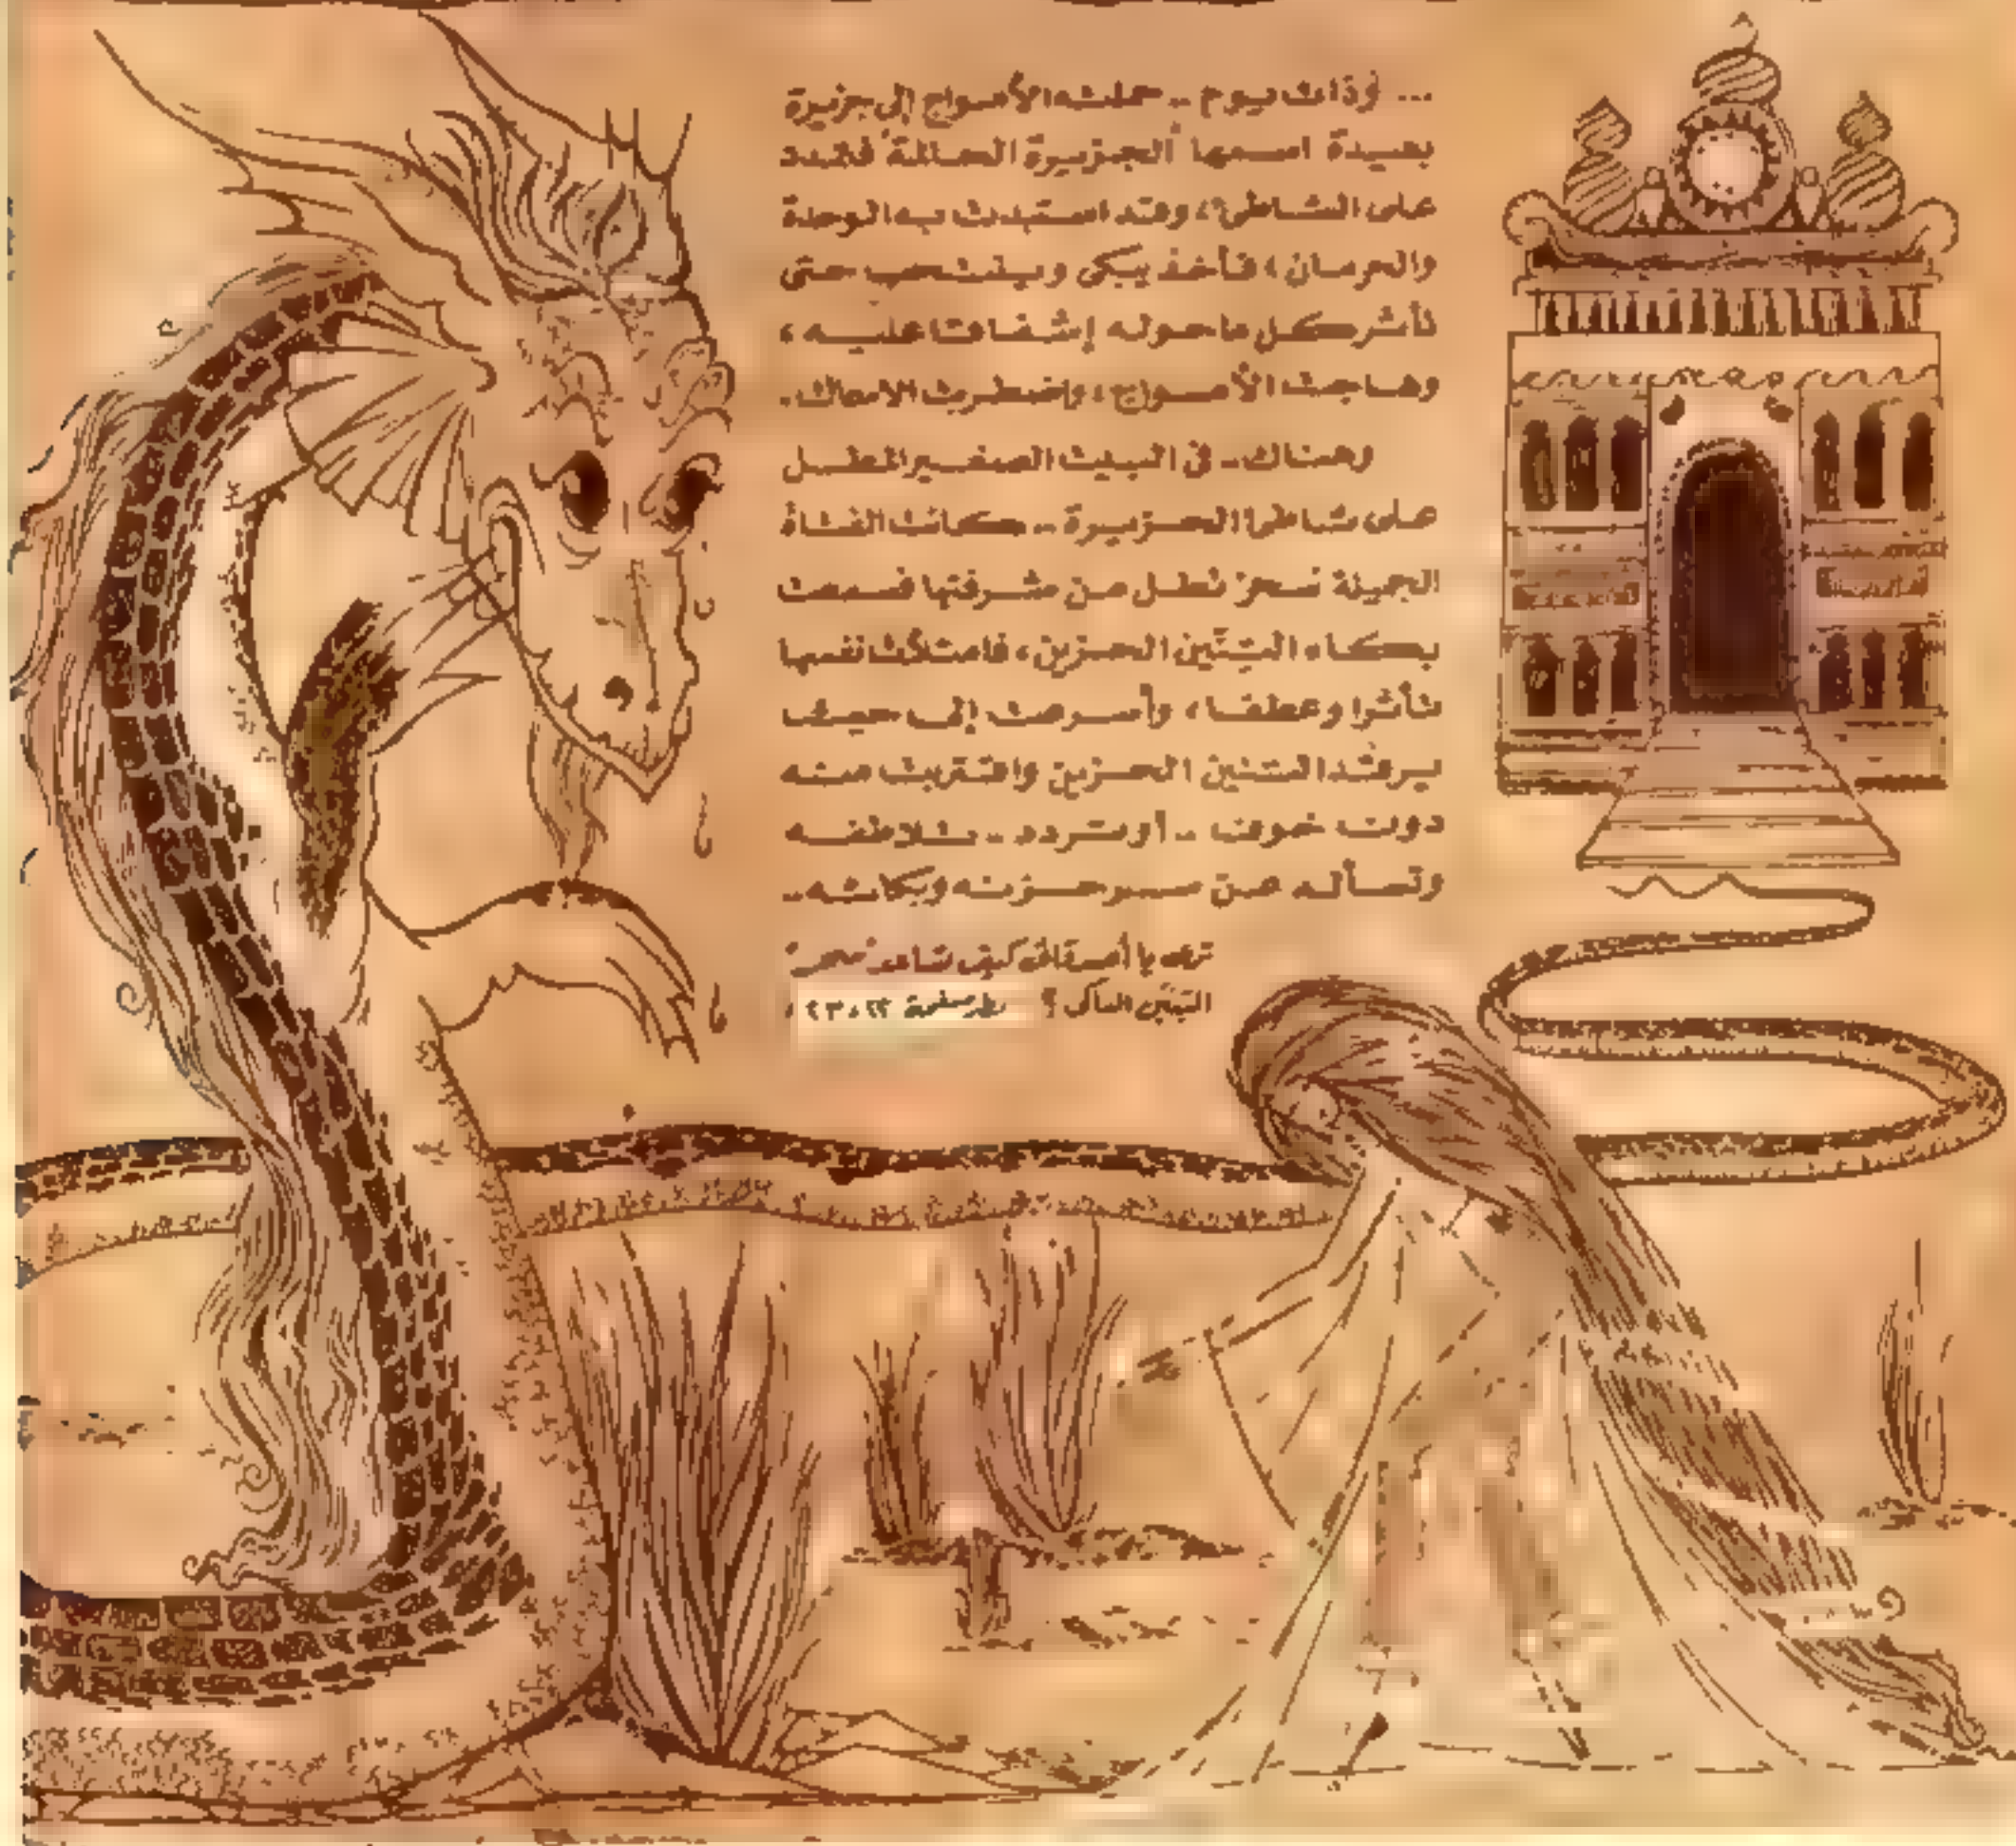 ... وذات يوم .. حملته الأمواج إلى جزيرة
بعيدة اسمها "الجزيرة الحالمة" فتمدد
على الشاطئ، وقد استبدت به الوحدة
والحرمان، فأخذ يبكى وينتحب حتى
تأثر كل ما حوله إشفاقا عليه،
وهاجت الأمواج، واضطربت الأسماك.
وهناك .. فى البيت الصغير المطل
على شاطئ الجزيرة .. كانت الفتاة
الجميلة تطل من شرفتها فسمعت
بكاء التِنّين الحزين، فامتلأت نفسها
تأثرا وعطفا، وأسرعت إلى حيث
يرقد التنين الحزين واقتربت منه
دون خوف .. أو تردد .. تلاطفه
وتسأله عن سر حزنه وبكائه ..
ترى يا أصدقائى كيف تساعد
التِنّين الباكى؟ صفحة ٢٢، ٢٣